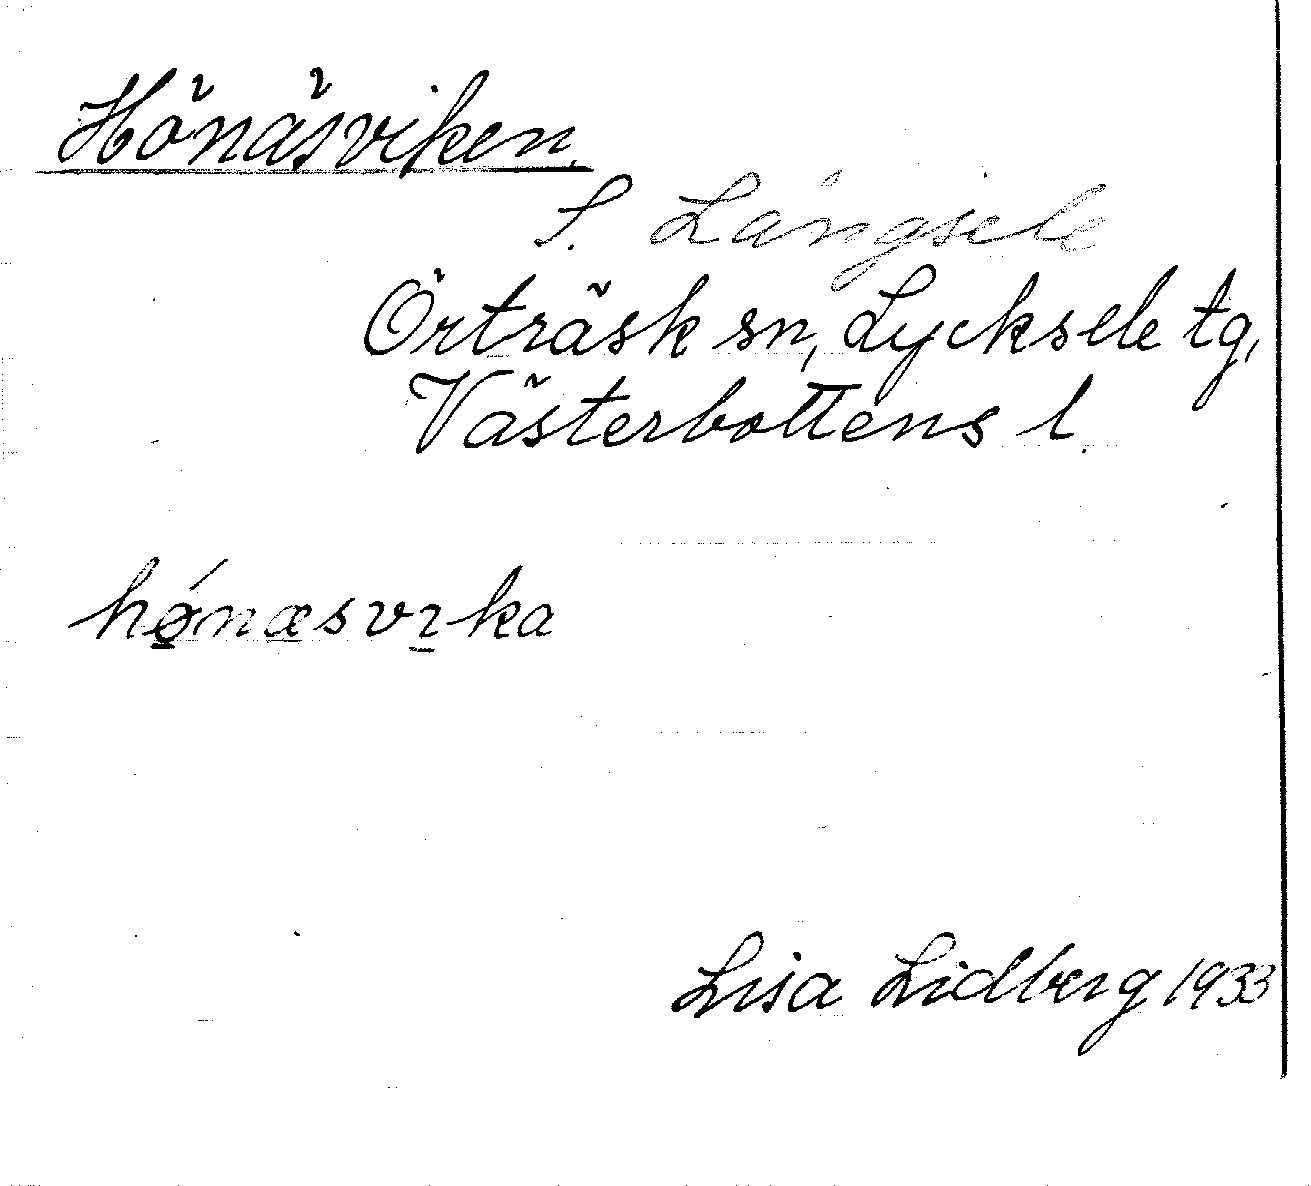 Hönäsviken.
S. Långsele
Örträsk sn, Lycksele tg,
Västerbottens l.
hǿnæsvɪka
Lisa Lidberg 1933